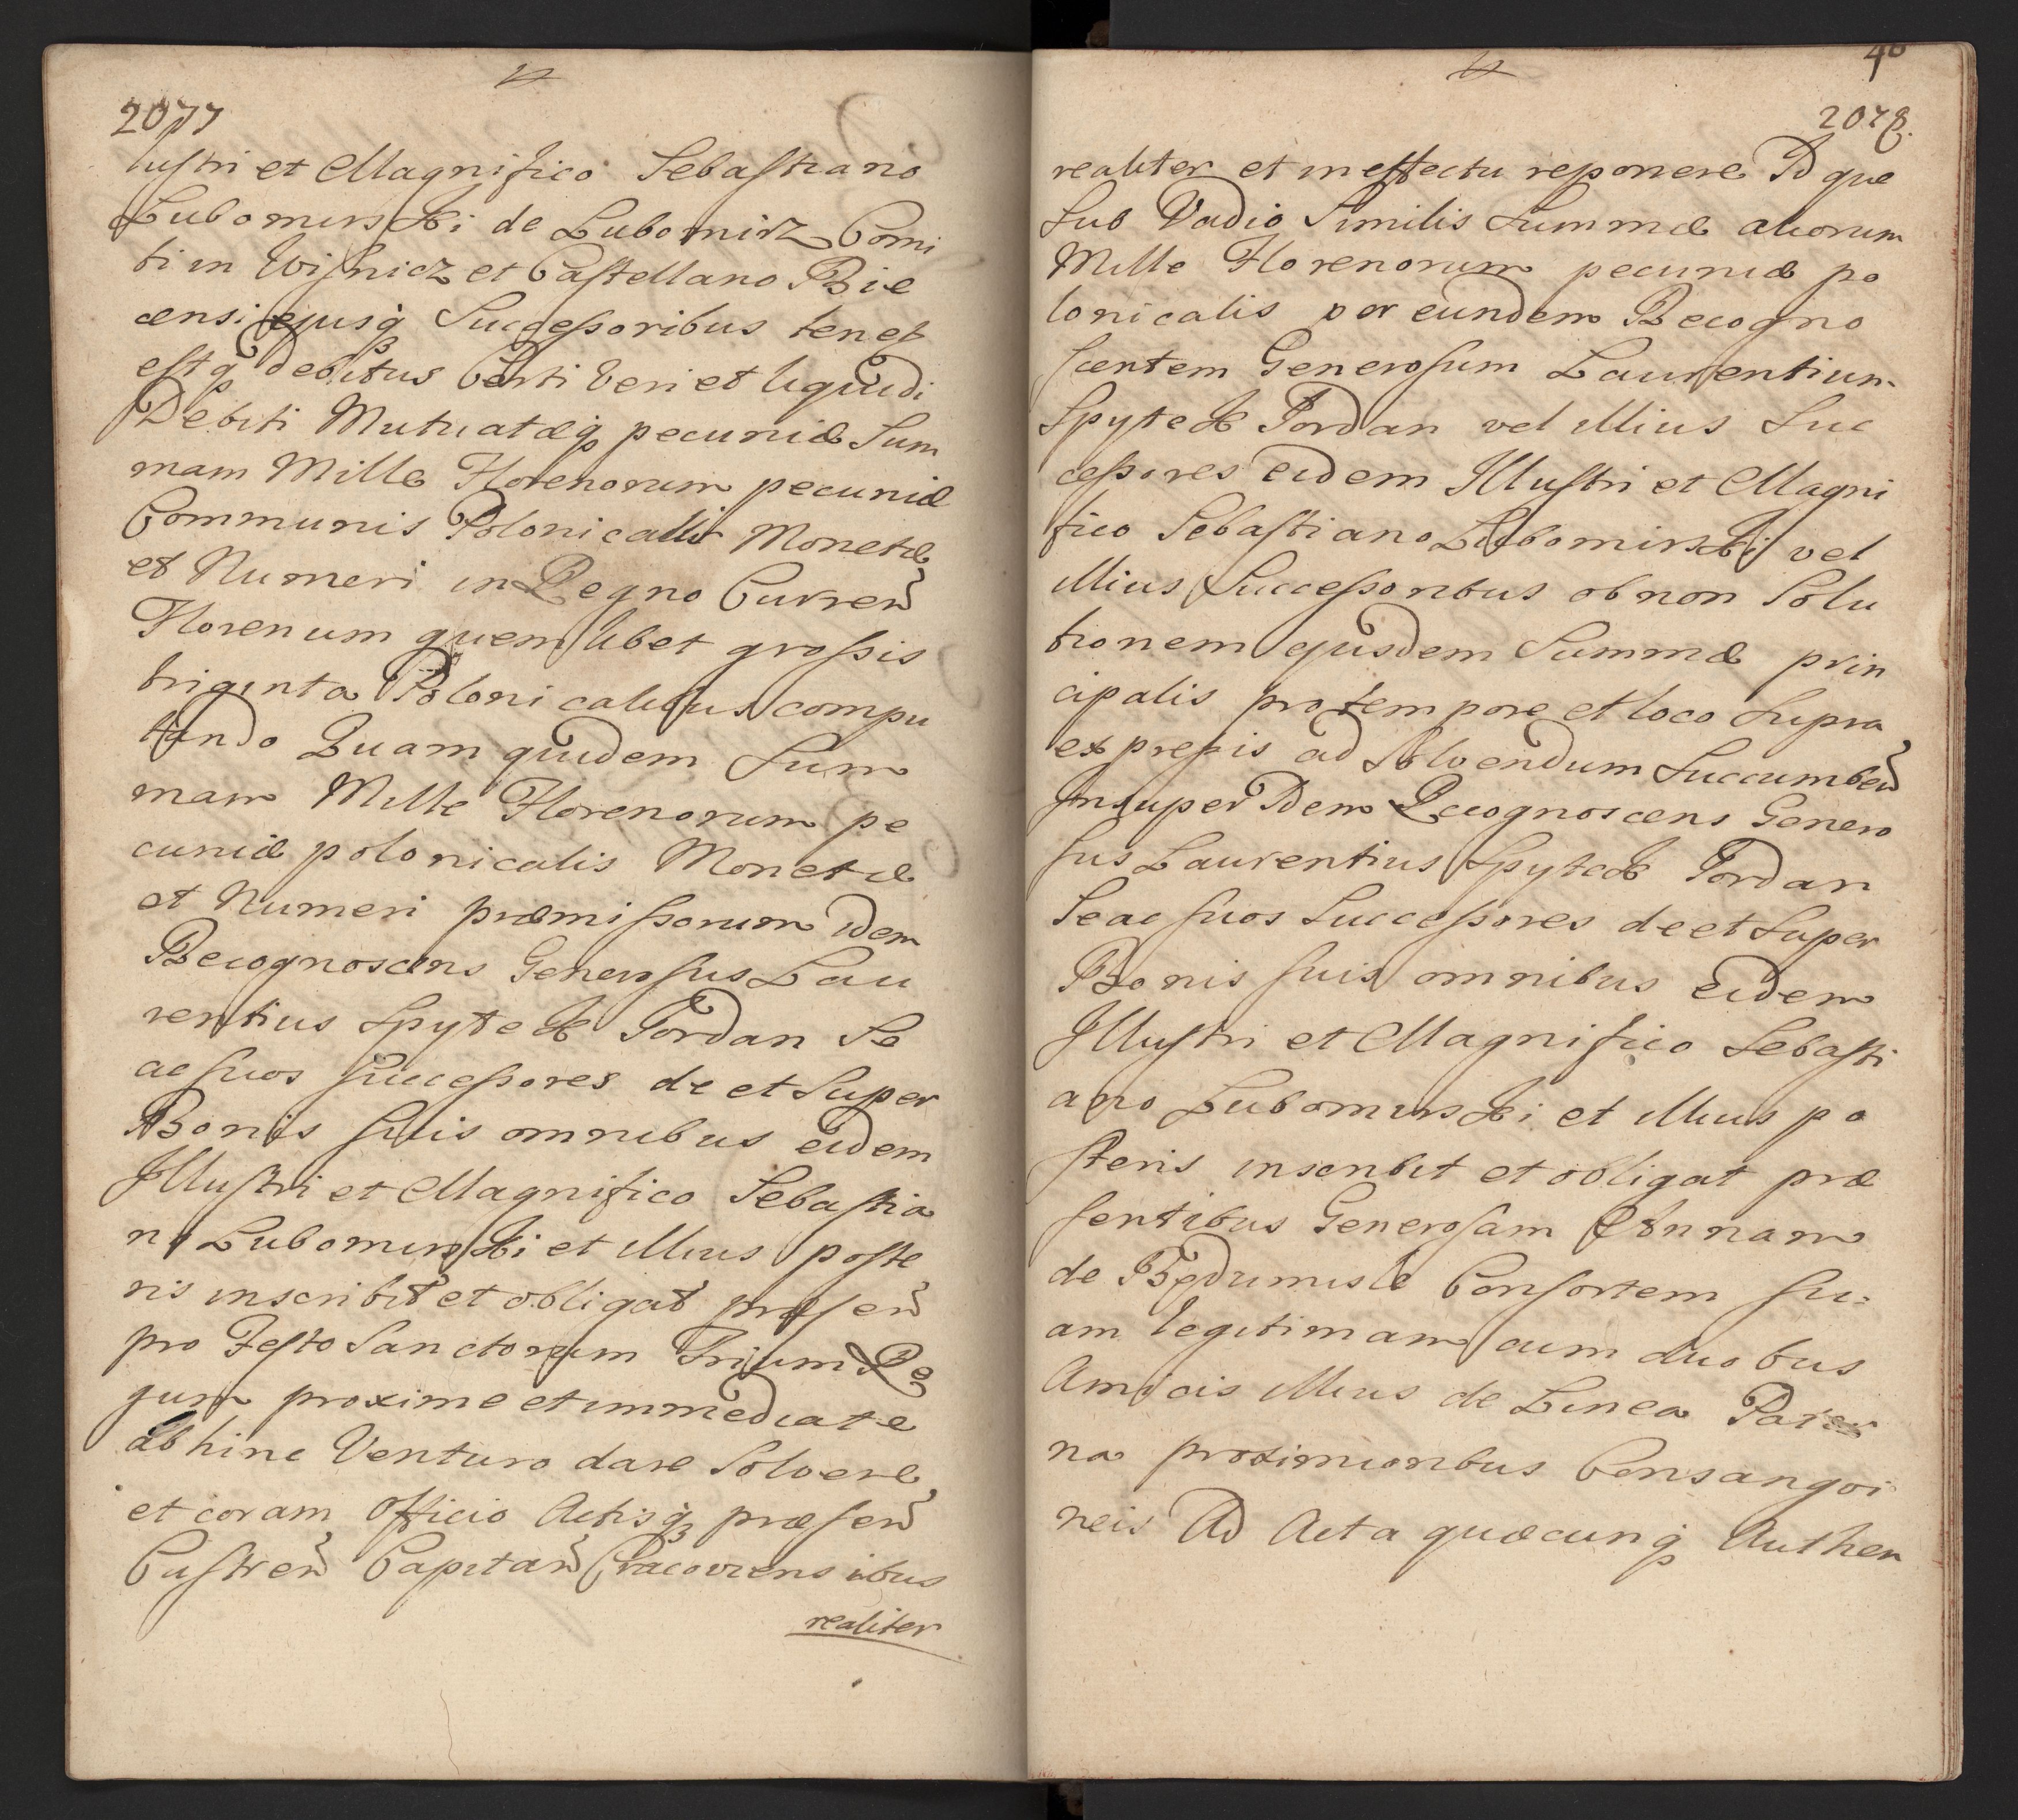 2077
lustri et Magnifico Sebastiano
Lubomirski de Lubomirz Comi
ti in Wisnicz et Castellano Bie
censi ejusq3 Successoribus tenet
estq3 debitus Certi Veri et liquidi
Debiti Mutuatæq3 pecuniæ Sum
mam Mille Florenorum pecuniæ
Communis Polonicalis Monetæ
et Numeri in Regno Curren̄
Florenum quemlibet grossis
triginta Polonicalibus compu
tando Quam quidem Sum
mam Mille Florenorum pe
cuniæ polonicalis Monetæ
et Numeri præmissorum idem
Recognoscens Generosus Lau
rentius Spytek Jordan Se
ac suos successores de et Super
Bonis suis omnibus eidem
Illustri et Magnifico Sebastia
no Lubomirski et illius poste
ris inscribit et obligat præsen̄
pro Festo Sanctorum Trium Re
gum proxime et immediate
abhinc Venturo dare Solvere
et coram Officio Actisq3 præsen̄
Castren̄ Capitan̄ Cracoviensibus
realiter
40
2078.
realiter et in effectu reponere Id que
Sub Vadio Similis Summæ aliorum
Mille Florenorum pecuniæ po
lonicalis per eundem Recogno
scentem Generosum Laurentium
Spytek Jordan vel illius Suc
cessores eidem Illustri et Magni
fico Sebastiano Lubomirski vel
illius Successoribus ob non Solu
tionem ejusdem Summæ prin
cipalis pro tempore et loco Supra
expressis ad Solvendum Succumben̄
Insuper Idem Recognoscens Genero
sus Laurentius Spytek Jordan
Se ac suos Successores de et Super
Bonis suis omnibus eidem
Illustri et Magnifico Sebasti
ano Lubomirski et illius po
steris inscribit et obligat præ
sentibus Generosam Annam
de Consortem su=
am legitimam cum duobus
Amicis illius de Linea Pater
na proximioribus Consangvi
neis Ad Acta quæcunq3 Authen